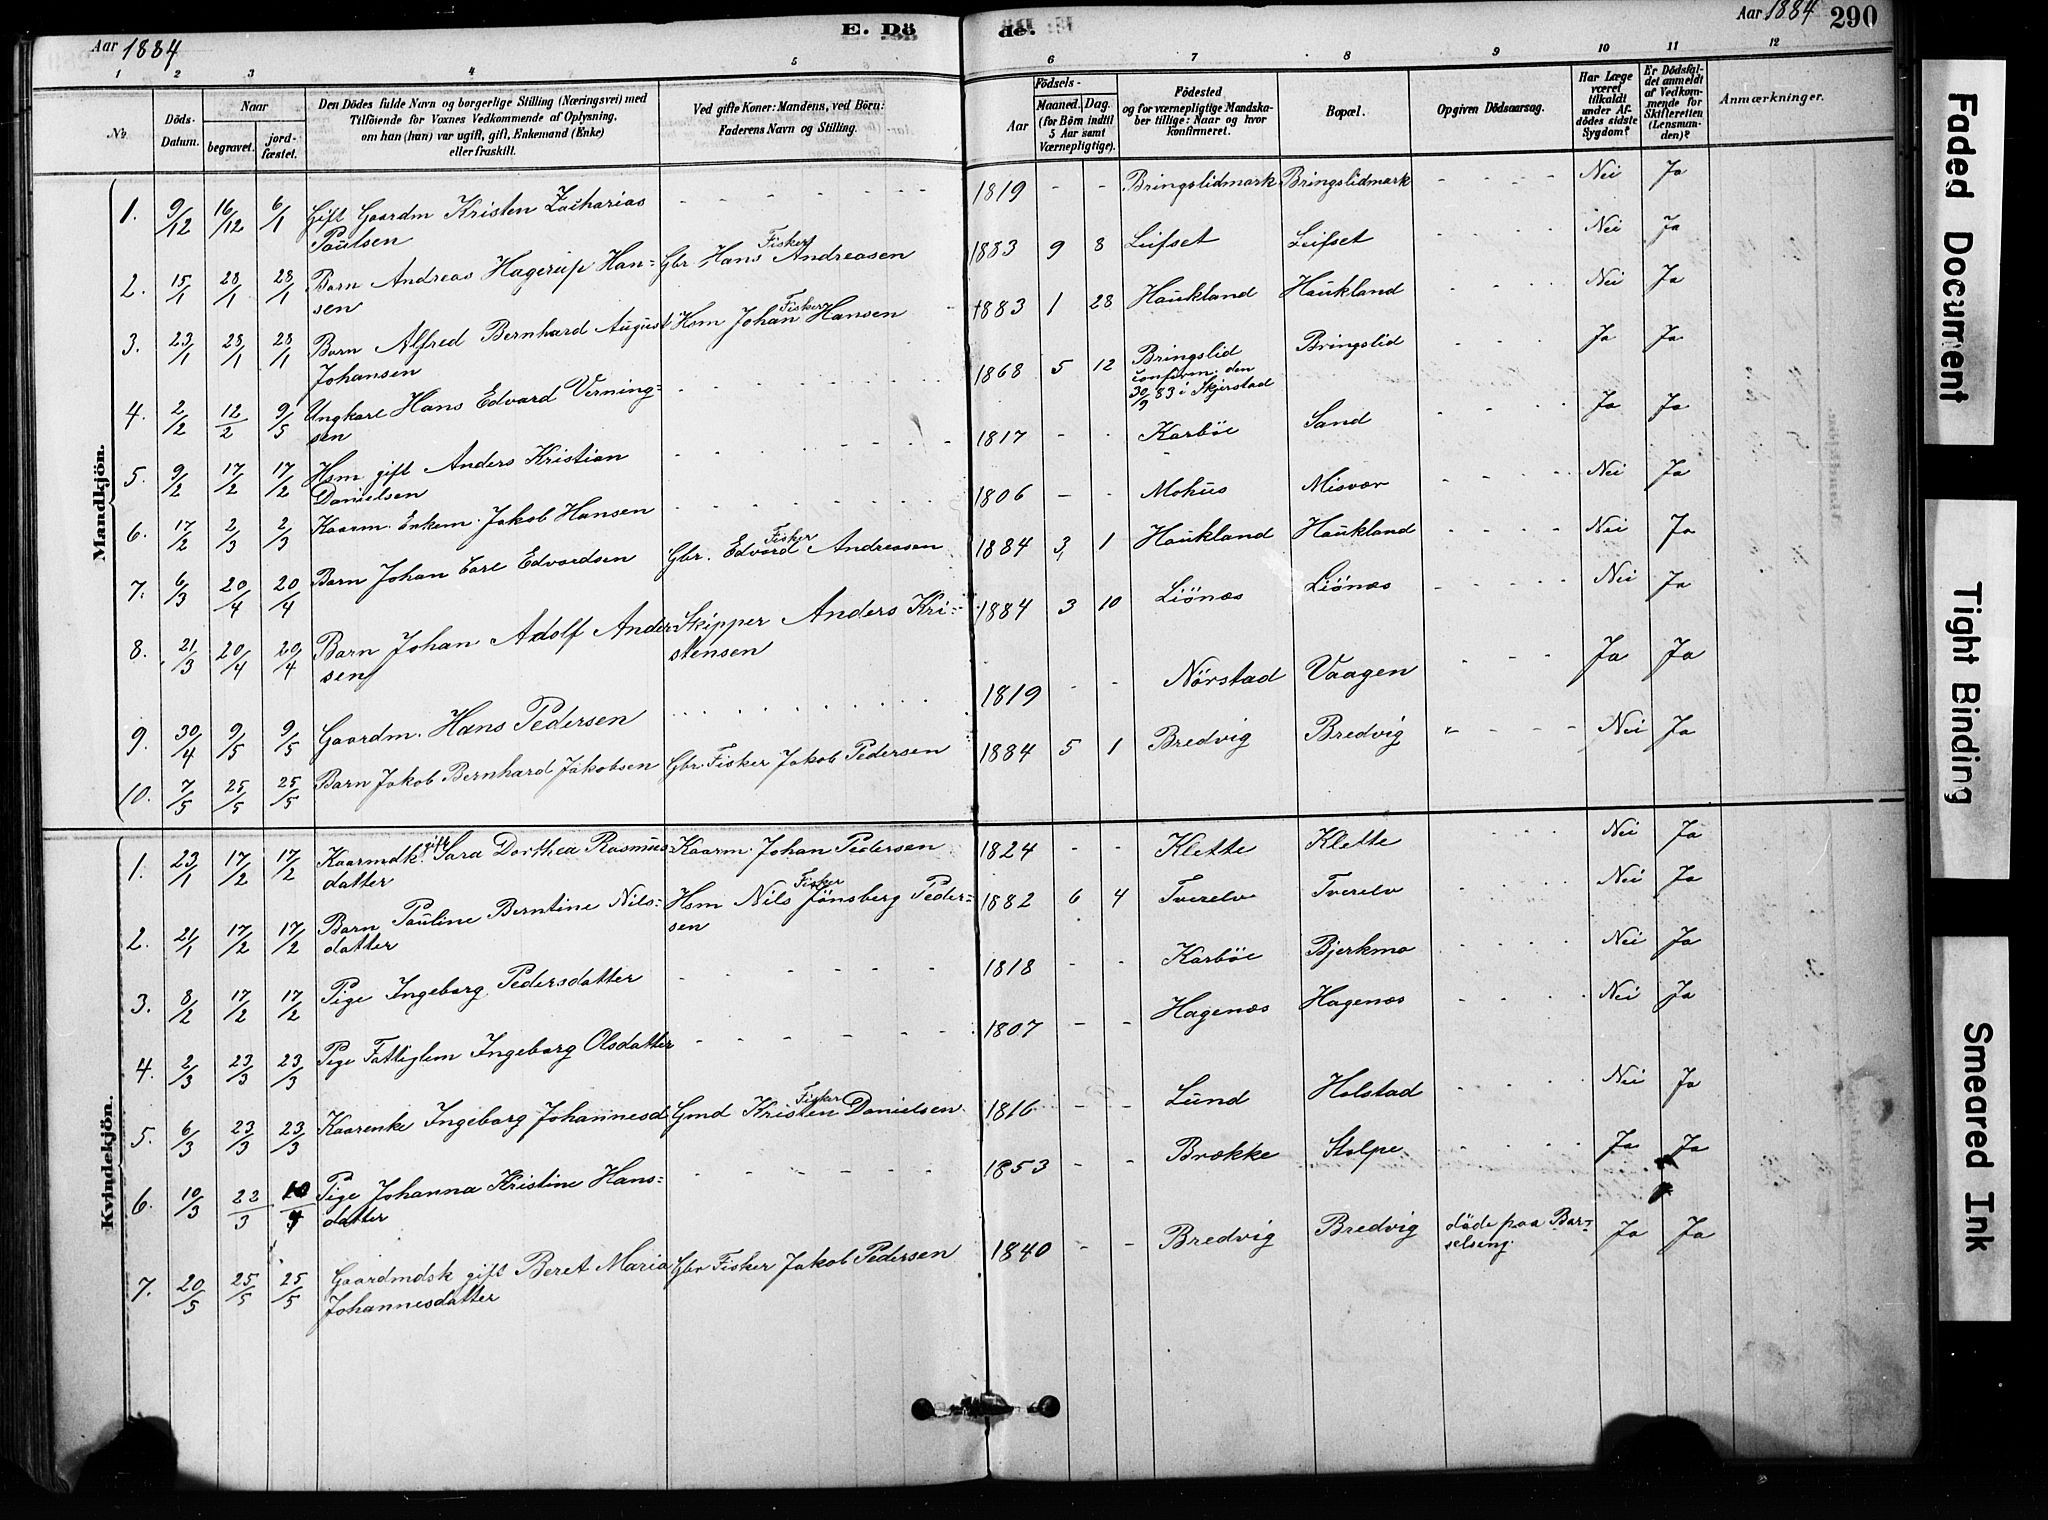 Aar 1884
E. Döde.
Aar 1884 290
1 2 3 4 5 6 7 8 9 10 11 12
No.
Döds-Datum.
Naar
begravet.
jord-fæstet.
Den Dödes fulde Navn og borgerlige Stilling (Næringsvei) med
Tilföiende for Voxnes Vedkommende af Oplysning,
om han (hun) var ugift, gift, Enkemand (Enke)
eller fraskilt.
Ved gifte Koner: Mandens, ved Börn:
Faderens Navn og Stilling.
Födsels-
Aar
Maaned. Dag.
(for Börn indtil
5 Aar samt
Værnepligtige).
Födested
og for værnepligtige Mandska-
ber tillige: Naar og hvor
konfirmeret.
Bopæl.
Opgiven Dödsaarsag.
Har Læge
været
tilkaldt
under Af-
dödes sidste
Sygdom?
Er Dödsfal-
det anmeldt
af Vedkom-
mende for
Skifteretten
(Lensman-
den)?
Anmærkninger.
Mandkjön.
1. 9/12 16/12 6/1 Gift Gaardm Kristen Zacharias Paulsen - - - 1819 - - Bringslidmark Bringslidmark - - - Nei Ja
2. 15/1 28/1 28/1 Barn Andreas Hagerup Hansen Gbr Fisker Hans Andreasen 1883 9 8 Leifset Leifset - - - Nei Ja
3. 23/1 28/1 28/1 Barn Alfred Bernhard August Johansen Hsm Fisker Johan Hansen 1883 1 28 Haukland Haukland - - - Nei Ja
4. 2/2 12/2 9/5 Ungkare Hans Edvard Verningsen - - - 1868 5 12 Bringslid confirm. den 30/9 83 i Skjerstad Bringslid - - - Ja Ja
5. 9/2 17/2 17/2 Hsm gift Anders Kristian Danielsen - - - 1817 - - Karböe Sand - - - Ja Ja
6. 17/2 2/3 2/3 Kaarm. Enkem. Jakob Hansen - - - 1806 - - Mohus Misvær - - - Nei Ja
7. 6/3 20/4 20/4 Barn Johan Carl Edvardsen Gbr. Fisker Edvard Andreasen 1884 3 1 Haukland Haukland - - - Nei Ja
8. 21/3 20/4 20/4 Barn Johan Adolf Andersen Skipper Anders Kristensen 1884 3 10 Liönæs Liönæs - - - Nei Ja
9. 30/4 9/5 9/5 Gaardm. Hans Pedersen - - - 1819 - - Nörstad Vaagen - - - Ja Ja
10. 7/5 25/5 25/5 Barn Jakob Bernhard Jakobsen Gbr. Fisker Jakob Pedersen 1884 5 1 Bredvig Bredvig - - - Nei Ja
Kvindekjön.
1. 23/1 17/2 17/2 Kaarmdk. gift Sara Dorthea Rasmusdatter Kaarm. Johan Pedersen 1824 - - Klette Klette - - - Nei Ja
2. 21/1 17/2 17/2 Barn Pauline Berntine Nilsdatter Hsm Fisker Nils Jönsberg Pedersen 1882 6 4 Tverelv Tverelv - - - Nei Ja
3. 8/2 17/2 17/2 Pige Ingeborg Pedersdatter - - - 1818 - - Karböe Bjerkmo - - - Nei Ja
4. 2/3 23/3 23/3 Pige Fattiglem Ingeborg Olsdatter - - - 1807 - - Hagenæs Hagenæs - - - Nei Ja
5. 6/3 23/3 23/3 Kaarenke Ingeborg Johannesd Gmd Fisker Kristen Danielsen 1816 - - Lund Holstad - - - Nei Ja
6. 10/3 23/3 Pige Johanna Kristine Hansdatter - - - 1853 - - Brække Stolpe - - - Ja Ja
7. 20/5 25/5 25/5 Gaardmdsk gift Beret Maria Johannesdatter Gbr Fisker Jakob Pedersen 1840 - - Bredvig Bredvig döde paa Barselseng. Ja Ja
Faded Document
Tight Binding
Smeared Ink